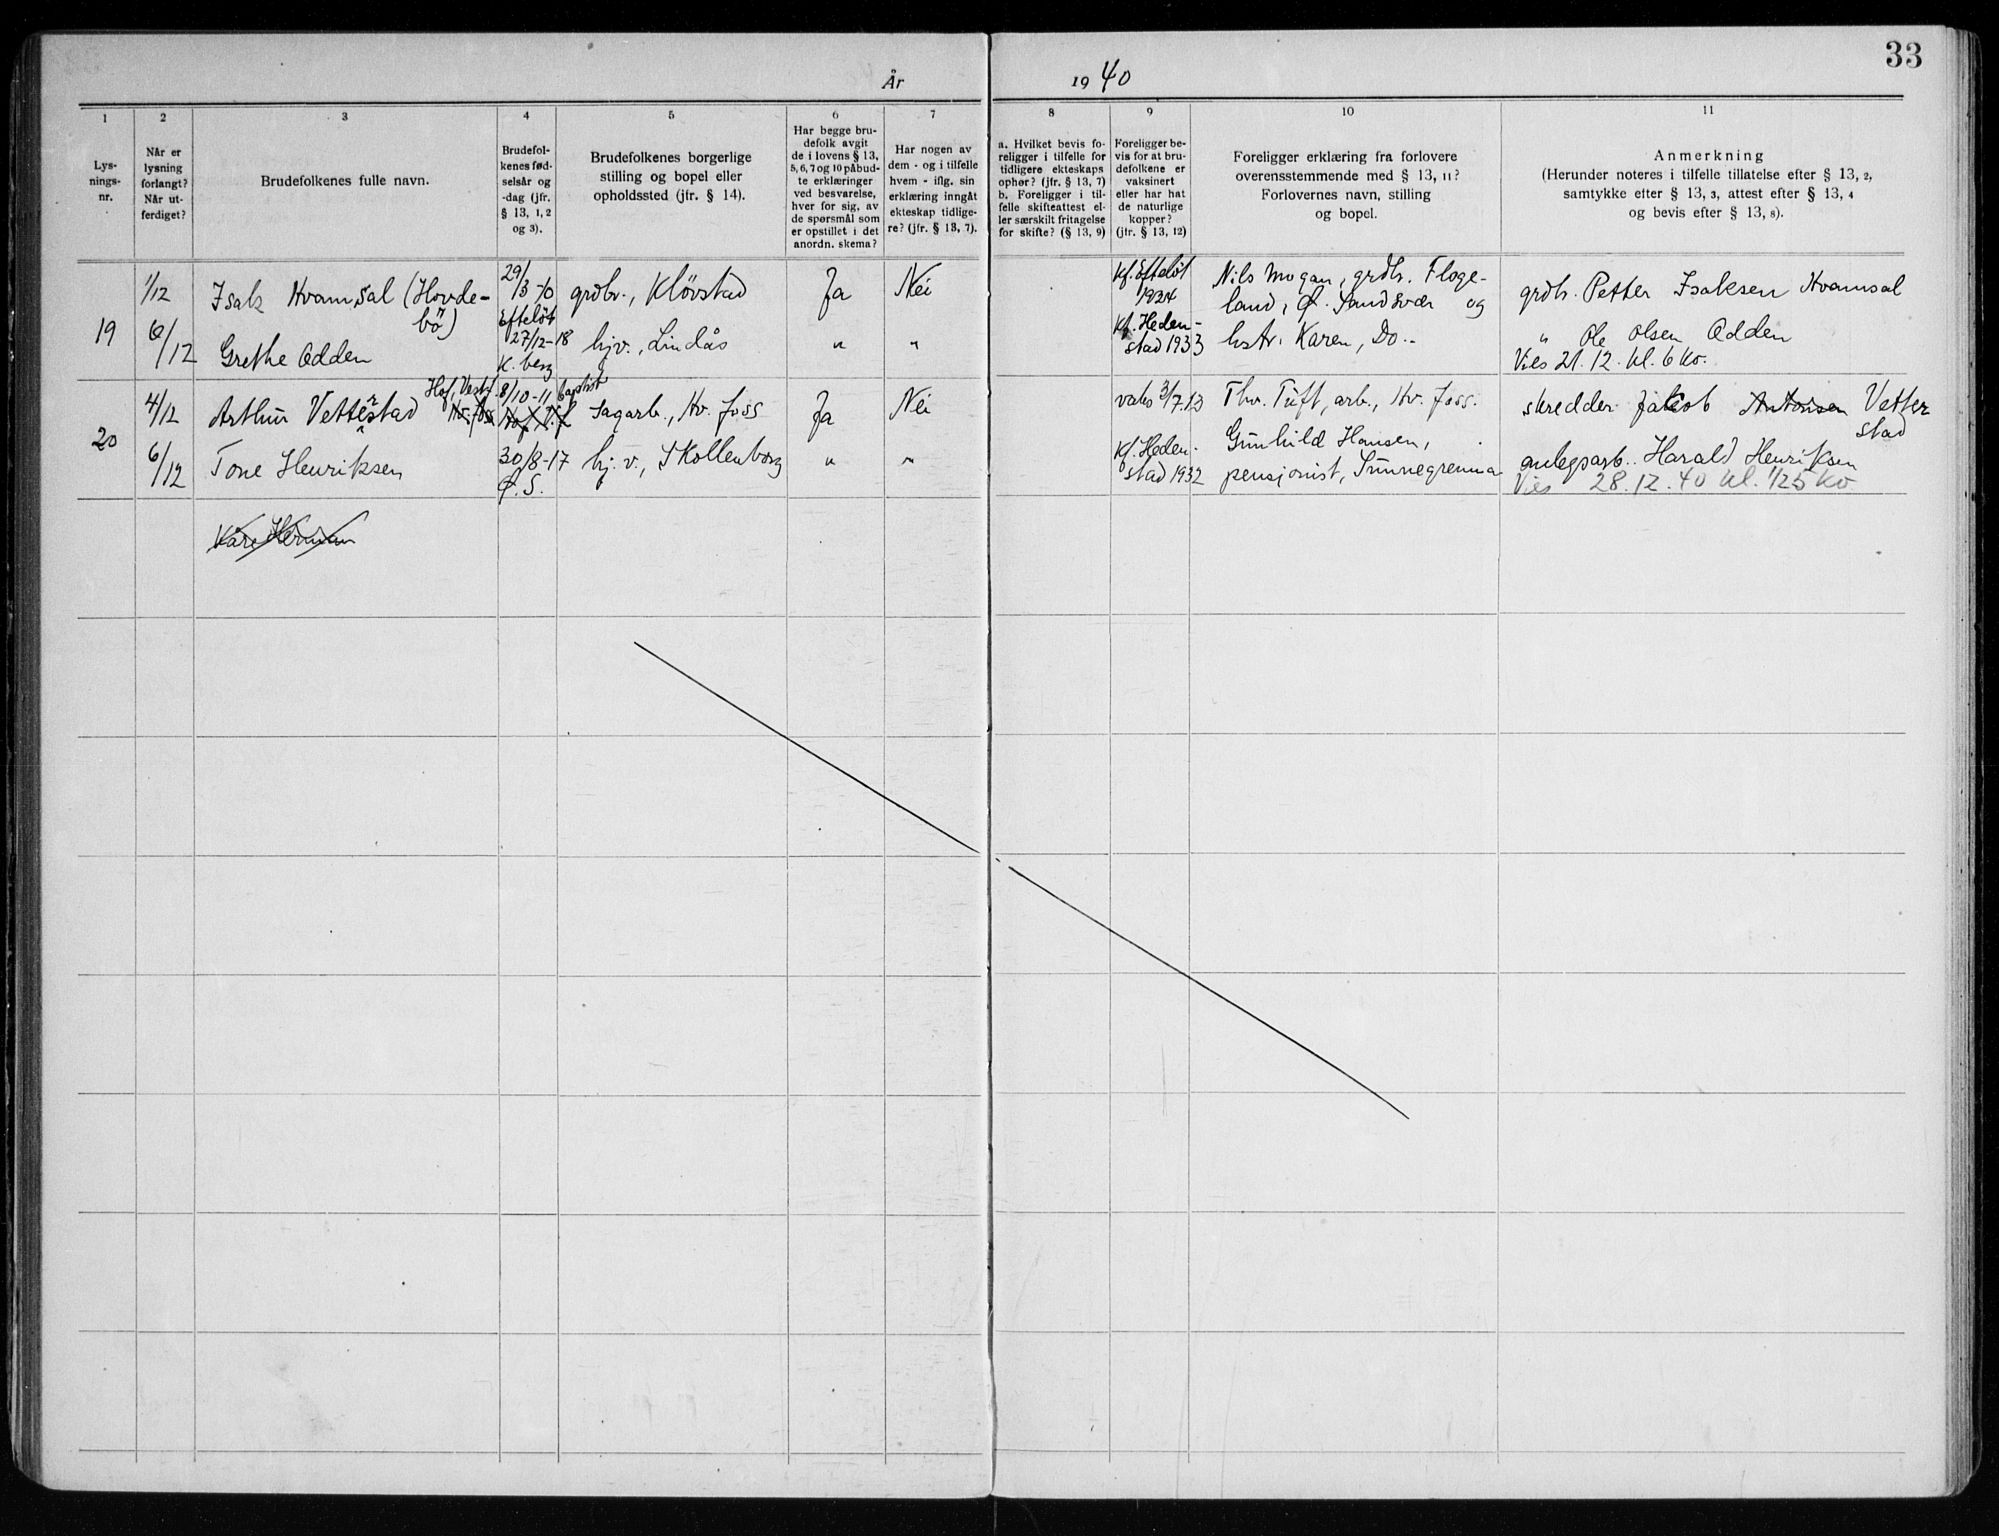 33
År 1940
1
2
3
4
5
6
7
8
9
10
11
Lys-
nings-
nr.
Når er
lysning
forlangt?
Når ut-
ferdiget?
Brudefolkenes fulle navn.
Brudefol-
kenes fød-
selsår og
-dag (jfr.
§ 13, 1, 2
og 3).
Brudefolkenes borgerlige
stilling og bopel eller
opholdssted (jfr. § 14).
Har begge bru-
defolk avgit
de i lovens § 13,
5, 6, 7 og 10 påbud-
te erklæringer
ved besvarelse,
hver for sig, av
de spørsmål som
er opstillet i det
anordn. skema?
Har nogen av
dem - og i tilfelle
hvem - iflg. sin
erklæring inngåt
ekteskap tidlige-
re? (jfr. § 13, 7).
a. Hvilket bevis fo-
religger i tilfelle for
tidligere ekteskaps
ophør? (jfr. § 13, 7)
b. Foreligger i til-
felle skifteattest el-
ler særskilt fritagelse
for skifte? (§ 13, 9)
Foreligger be-
vis for at bru-
defolkene er
vaksinert
eller har hat
de naturlige
kopper?
(jfr. § 13, 12)
Foreligger erklæring fra forlovere
overensstemmende med § 13, 11?
Forlovernes navn, stilling
og bopel.
Anmerkning
(Herunder noteres i tilfelle tillatelse efter § 13, 2,
samtykke efter § 13, 3, attest efter § 13, 4
og bevis efter § 13, 8).
19
1/12
6/12
Isak Kvamsal (Hovde-
bö)
Grethe Odden
29/3-10
Efteløt
27/12-18
K.berg
grdbr., Klövstad
hjv., Lindås
Ja
"
Nei
"
Kf. Efteløt
1924
Kf. Heden-
stad 1933
Nils Mogan, grdbr. Floge-
land, Ø. Sandsvær og
hstr. Karen, Do.
grdbr. Petter Isaksen Kvamsal
" Ole Olsen Odden
Vies 21.12. kl. 6 Ko.
20
4/12
6/12
Arthur Vetterstad
Hof, Vestf
Tone Henriksen
8/10-11
baptist
30/8-17
Ø.S.
Sagarb., Hv. foss
hj.v., Skollenborg
Ja
"
Nei
"
vaks 3/7.13
Kf. Heden-
stad 1932
Thv. Tuft, arb., Hv. foss.
Gunhild Hansen,
pensjonist, Sunnegrenna
skredder Jakob Antonsen Vetter
stad
anlegsarb. Harald Henriksen
Vies 28.12.40 kl. 1/2 5 Ko
Kåre Herman